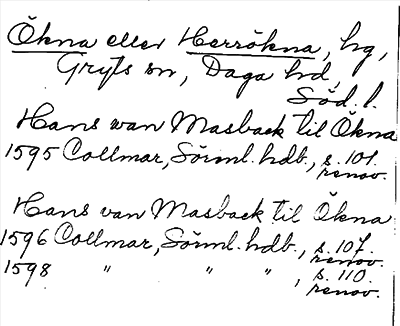 Ökna eller Herrökna, hg,
Gryts sn, Daga hd,
Söd. l.
Hans van Masback til Ökna
1595 Collmar, Sörml. hdb., s. 101.
renov.
Hans van Masback til Ökna
1596 Collmar, Sörml. hdb., s. 107.
renov.
1598 " " " , s. 110.
renov.